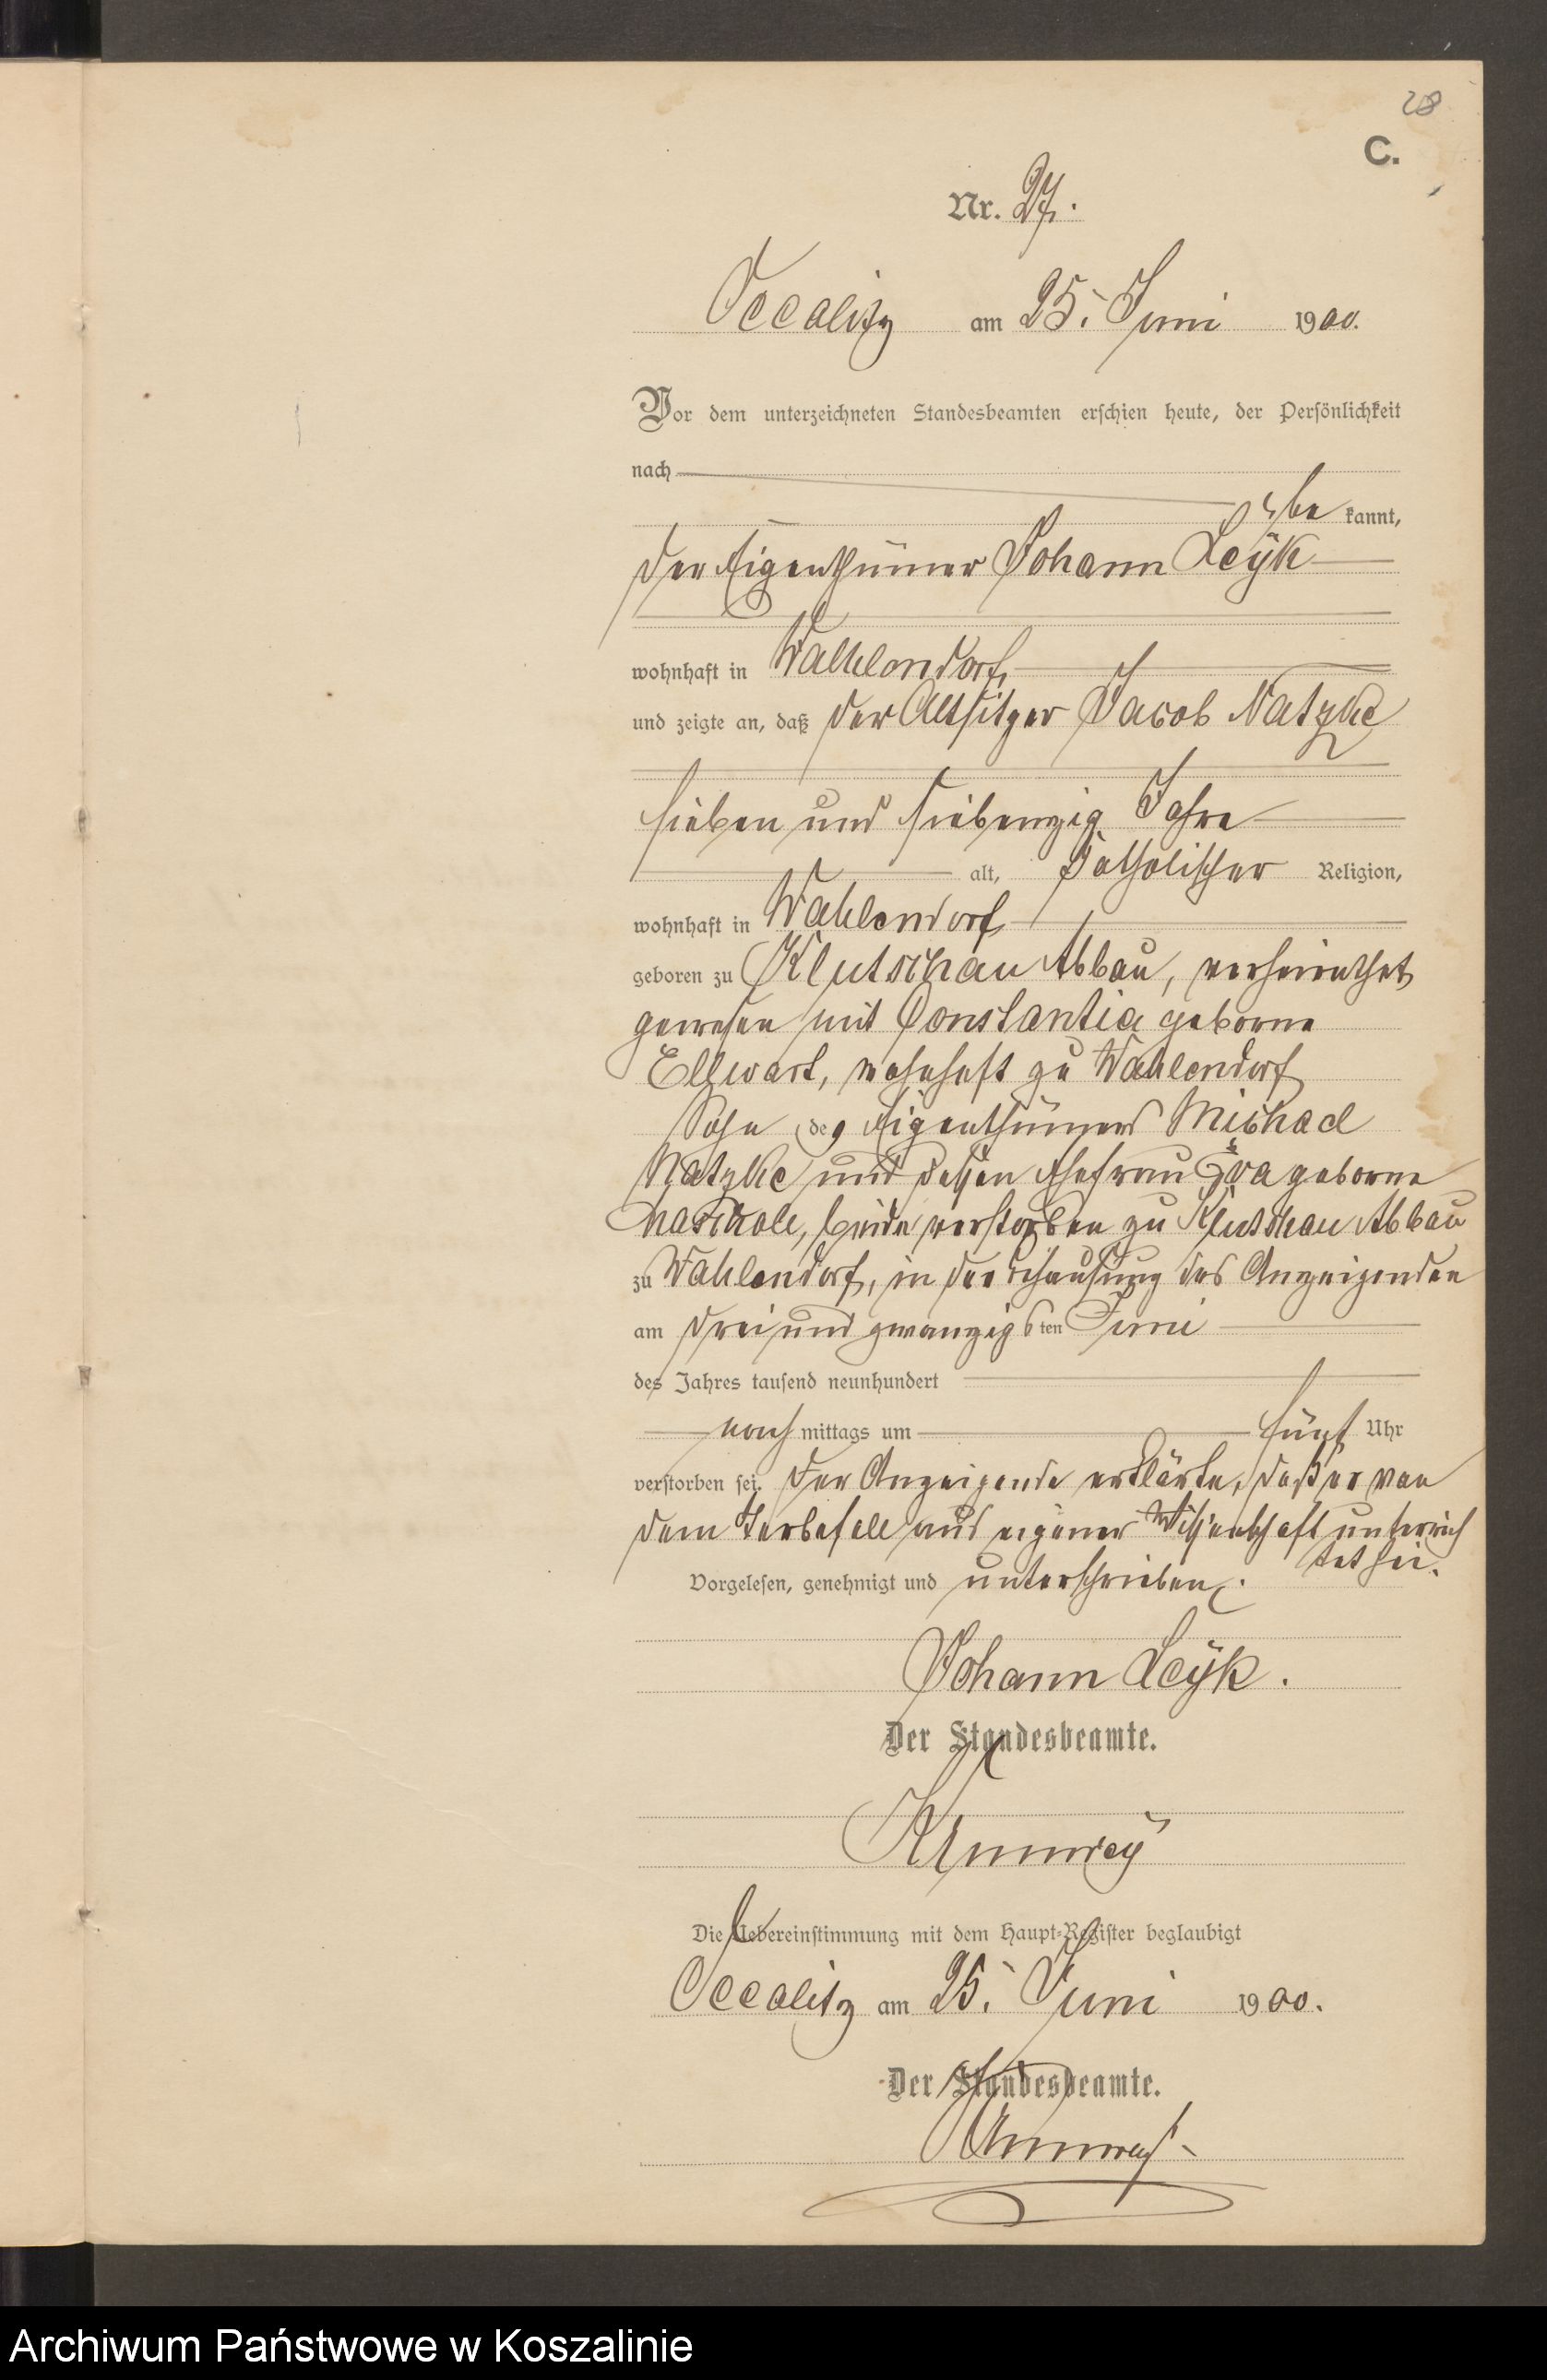 28
C.
Nr. 27.
Occalitz am 25. Juni 1900.
Vor dem unterzeichneten Standesbeamten erschien heute, der Persönlichkeit
nach
be kannt,
der Eigenthümer Johann Leÿk
wohnhaft in Wahlendorf,
und zeigte an, daß der Altsitzer Jacob Natzke
sieben und siebenzig Jahre
alt, katholischer Religion,
wohnhaft in Wahlendorf
geboren zu Klutschau Abbau, verheirathet
gewesen mit Constantia geborne
Ellwart, wohnhaft zu Wahlendorf
Sohn des Eigenthümers Michael
Natzke und dessen Ehefrau Eva geborne
beide verstorben zu Klutschau Abbau
zu Wahlendorf, in der Behausung des Anzeigenden
am drei und zwanzigsten Juni
des Jahres tausend neunhundert
nach mittags um fünf Uhr
verstorben sei. Der Anzeigende erklärte, daß er von
dem Sterbefall aus eigener Wissenschaft unterrich
tet sei.
Vorgelesen, genehmigt und unterschrieben.
Johann Leÿk.
Der Standesbeamte.
Die Uebereinstimmung mit dem Haupt-Register beglaubigt
Occalitz am 25. Juni 1900.
Der Standesbeamte.
Archiwum Państwowe w Koszalinie